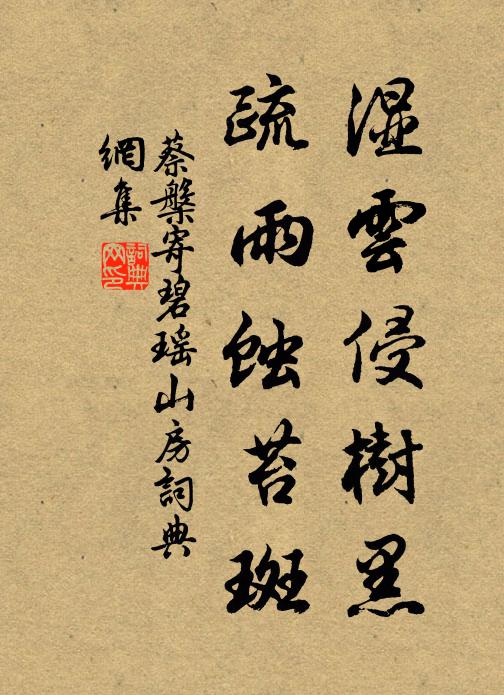 湿雲侵樹黑
疏雨蝕苔斑
蔡槃寄碧瑶山房詞典
網集
詞典網印